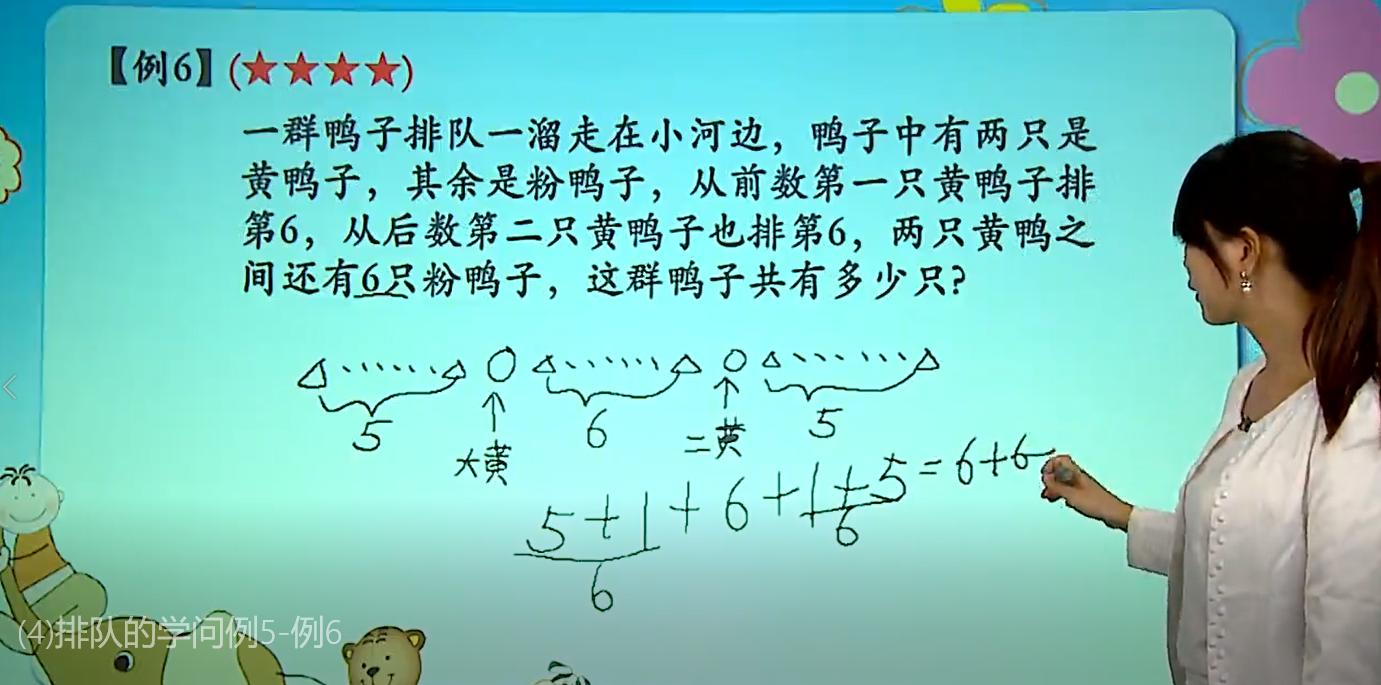 【例6】(★★★★)
一群鸭子排队一溜走在小河边，鸭子中有两只是
黄鸭子，其余是粉鸭子，从前数第一只黄鸭子排
第6，从后数第二只黄鸭子也排第6，两只黄鸭之
间还有6只粉鸭子，这群鸭子共有多少只?
5
6
5
大黄
二黄
5+1+6+1+5=6+6
6
6
(4)排队的学问例5-例6